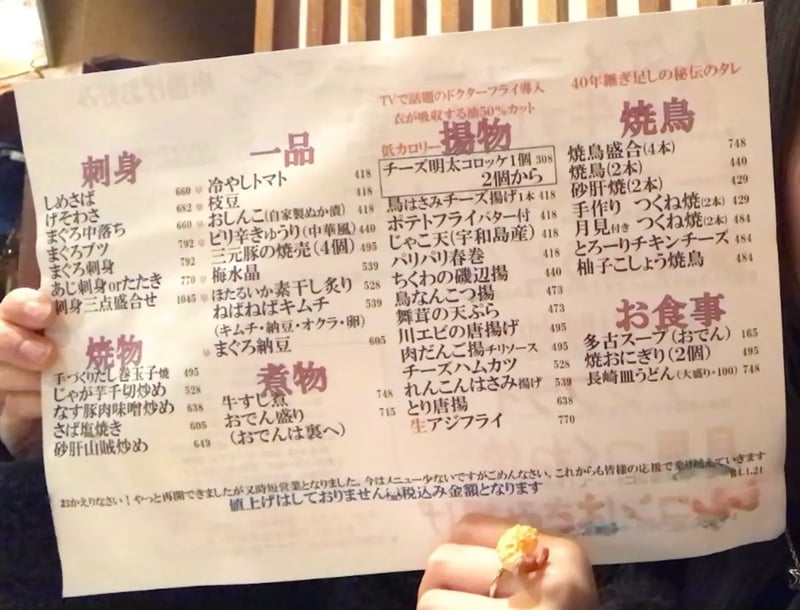 刺身
しめさば 660
げそわさ 682
まぐろ中落ち 660
まぐろブツ 792
まぐろ刺身 792
あじ刺身orたたき 770
刺身三点盛合せ 1045
焼物
手づくりだし巻玉子焼 495
じゃが芋千切炒め 528
なす豚肉味噌炒め 638
さば塩焼き 605
砂肝山賊炒め 649
一品
冷やしトマト 418
枝豆 418
おしんこ(自家製ぬか漬) 418
ピリ辛きゅうり(中華風) 440
三元豚の焼売(4個) 495
梅水晶 539
ほたるいか素干し炙り 528
ねばねばキムチ 539
(キムチ・納豆・オクラ・卵)
まぐろ納豆 605
煮物
牛すじ煮 748
おでん盛り 715
(おでんは裏へ)
TVで話題のドクターフライ導入
衣が吸収する油50%カット
低カロリー 揚物
チーズ明太コロッケ1個 308
2個から
鳥はさみチーズ揚げ1本 418
ポテトフライバター付 418
じゃこ天(宇和島産) 418
パリパリ春巻 418
ちくわの磯辺揚 440
鳥なんこつ揚 473
舞茸の天ぷら 473
川エビの唐揚げ 495
肉だんご揚チリソース 495
チーズハムカツ 528
れんこんはさみ揚げ 539
とり唐揚 638
生アジフライ 770
40年継ぎ足しの秘伝のタレ
焼鳥
焼鳥盛合(4本) 748
焼鳥(2本) 440
砂肝焼(2本) 429
手作り つくね焼(2本) 429
月見付き つくね焼(2本) 484
とろーりチキンチーズ 484
柚子こしょう焼鳥 484
お食事
多古スープ(おでん) 165
焼おにぎり(2個) 495
長崎皿うどん(大盛り+100) 748
おかえりなさい!やっと再開できましたが又時短営業となりました。今はメニュー少ないですがごめんなさい。これからも皆様の応援で乗り越えていきます
R4.1.21
値上げはしておりません税込み金額となります